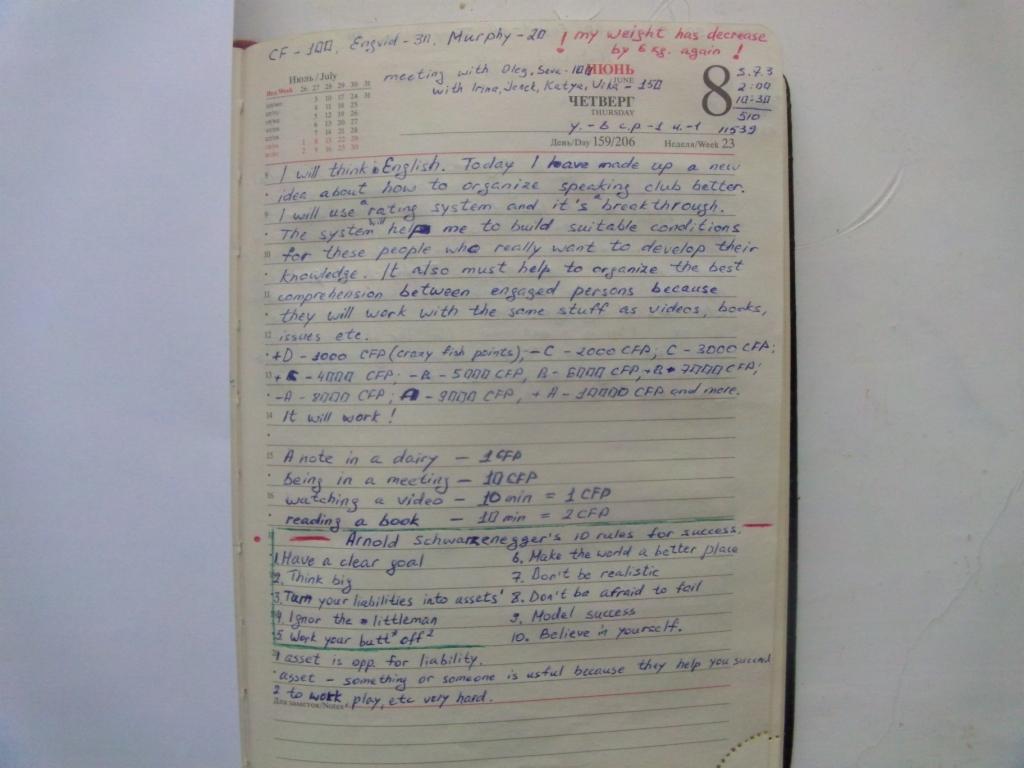 CF - 100, Engvid - 30, Murphy - 20 ! my weight has decrease
by 6 kg. again !
Июль / July
Нед/Week 26 27 28 29 30 31
3 10 17 24 31
4 11 18 25
5 12 19 26
6 13 20 27
7 14 21 28
1 8 15 22 29
2 9 16 23 30
meeting with Oleg, Seva - 100
with Irina, Jenek, Katya, Vika - 150
ИЮНЬ
JUNE
ЧЕТВЕРГ
THURSDAY
8
5.7.3
2:00
10-30
510
11539
у.-6 с.р-1 и.-1
День/Day 159/206 Неделя/Week 23
8 I will think in English. Today I have made up a new
idea about how to organize speaking club better.
9 I will use a rating system and it's a breakthrough.
The system will help me to build suitable conditions
10 for these people who really want to develop their
knowledge. It also must help to organize the best
11 comprehension between engaged persons because
they will work with the same stuff as videos, books,
12 issues etc.
+D - 1000 CFP (crazy fish points), -C - 2000 CFP; C - 3000 CFP;
13 +C - 4000 CFP; -B - 5000 CFP, B - 6000 CFP, +B - 7000 CFP;
-A - 8000 CFP; A - 9000 CFP, +A - 10000 CFP and more.
14 It will work!
15 A note in a dairy - 1 CFP
being in a meeting - 10 CFP
16 watching a video - 10 min = 1 CFP
reading a book - 10 min = 2 CFP
Arnold Schwarzenegger's 10 rules for success.
1. Have a clear goal 6. Make the world a better place
2. Think big 7. Don't be realistic
3. Turn your liabilities into assets¹ 8. Don't be afraid to fail
4. Ignor the littleman 9. Model success
5. Work your butt* off² 10. Believe in yourself.
1 asset is opp. for liability.
asset - something or someone is usful because they help you succeed
2 to work, play, etc very hard.
Для заметок/Notes